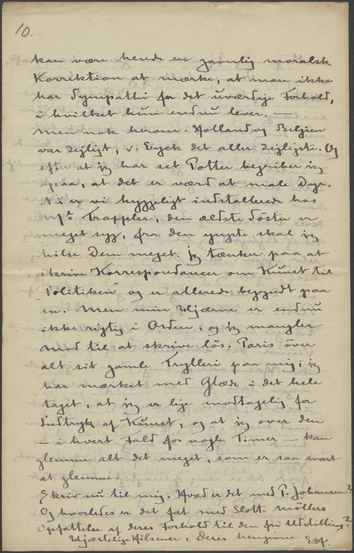 10.
kan være hende en gavnlig moralsk
Korrektion at mærke, at man ikke
har Sympathi for det uværdige Forhold,
i hvilket hun endnu lever. —
Men nok herom. Holland og Belgien
var dejligt, v. Eyck det aller dejligste. Og
efter at jeg har set Potter begriber jeg
ogsaa, at det er værd at male Dyr.
Nu er vi hyggeligt indstallerede hos
Trappler, den ældste Søster er
meget syg, fra den yngste skal jeg
hilse Dem meget. Jeg tænker paa at
skrive Korrespondancer om Kunst til
"Politiken" og er allerede begyndt paa
en. Men min Hjærne er endnu
ikke rigtig i Orden, og jeg mangler
Mod til at skrive løs. Paris øver
alt sit gamle Trylleri paa mig, jeg
har mærket med Glæde i det hele
taget, at jeg er lige modtagelig for
Indtryk af Kunst, og at jeg over den
— i hvert Fald for nogle Timer — kan
glemme alt det meget, som er saa svært
at glemme.
Skriv nu til mig. Hvad er det med P. Johansen?
Og hvorledes er det gaaet med Slott-Møllers
Opfattelse af deres Forhold til den fri Udstilling?
Hjærtelig Hilsener, Deres hengivne